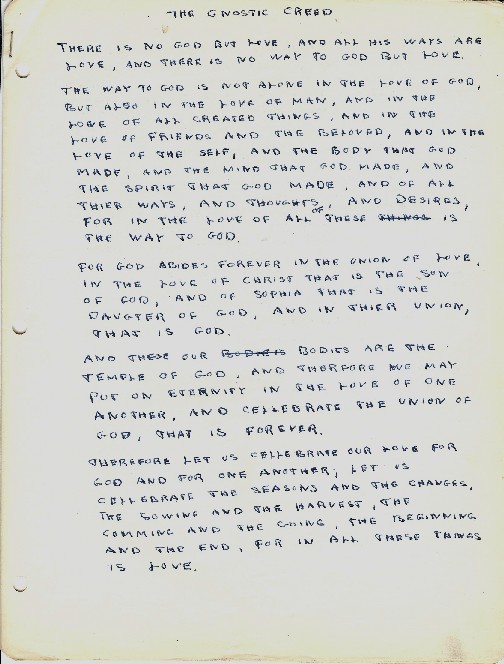 THE GNOSTIC CREED
THERE IS NO GOD BUT LOVE, AND ALL HIS WAYS ARE
LOVE, AND THERE IS NO WAY TO GOD BUT LOVE.
THE WAY TO GOD IS NOT ALONE IN THE LOVE OF GOD,
BUT ALSO IN THE LOVE OF MAN, AND IN THE
LOVE OF ALL CREATED THINGS, AND IN THE
LOVE OF FRIENDS AND THE BELOVED, AND IN THE
LOVE OF THE SELF, AND THE BODY THAT GOD
MADE, AND THE MIND THAT GOD MADE, AND
THE SPIRIT THAT GOD MADE, AND OF ALL
THIER WAYS, AND THOUGHTS, AND DESIRES,
FOR IN THE LOVE OF ALL OF THESE THINGS IS
THE WAY TO GOD.
FOR GOD ABIDES FOREVER IN THE UNION OF LOVE,
IN THE LOVE OF CHRIST THAT IS THE SON
OF GOD, AND OF SOPHIA THAT IS THE
DAUGTER OF GOD, AND IN THIER UNION,
THAT IS GOD.
AND THESE OUR BODIES ARE THE
TEMPLE OF GOD, AND THERFORE WE MAY
PUT ON ETERNITY IN THE LOVE OF ONE
ANOTHER, AND CELLEBRATE THE UNION OF
GOD, THAT IS FOREVER.
THEREFORE LET US CELLEBRATE OUR LOVE FOR
GOD AND FOR ONE ANOTHER; LET US
CELLEBRATE THE SEASONS AND THE CHANGES,
THE SOWING AND THE HARVEST, THE
COMMING AND THE GOING, THE BEGINNING
AND THE END, FOR IN ALL THESE THINGS
IS LOVE.